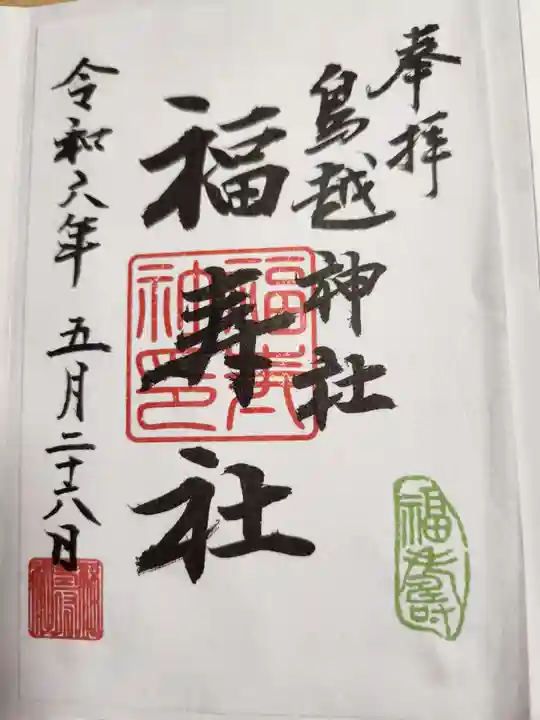 奉拝
鳥越神社
福寿社
令和六年 五月二十六日
福寿
神印
福寿